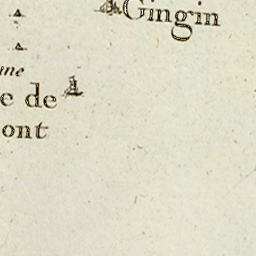 Gingin
ne
e de
ont